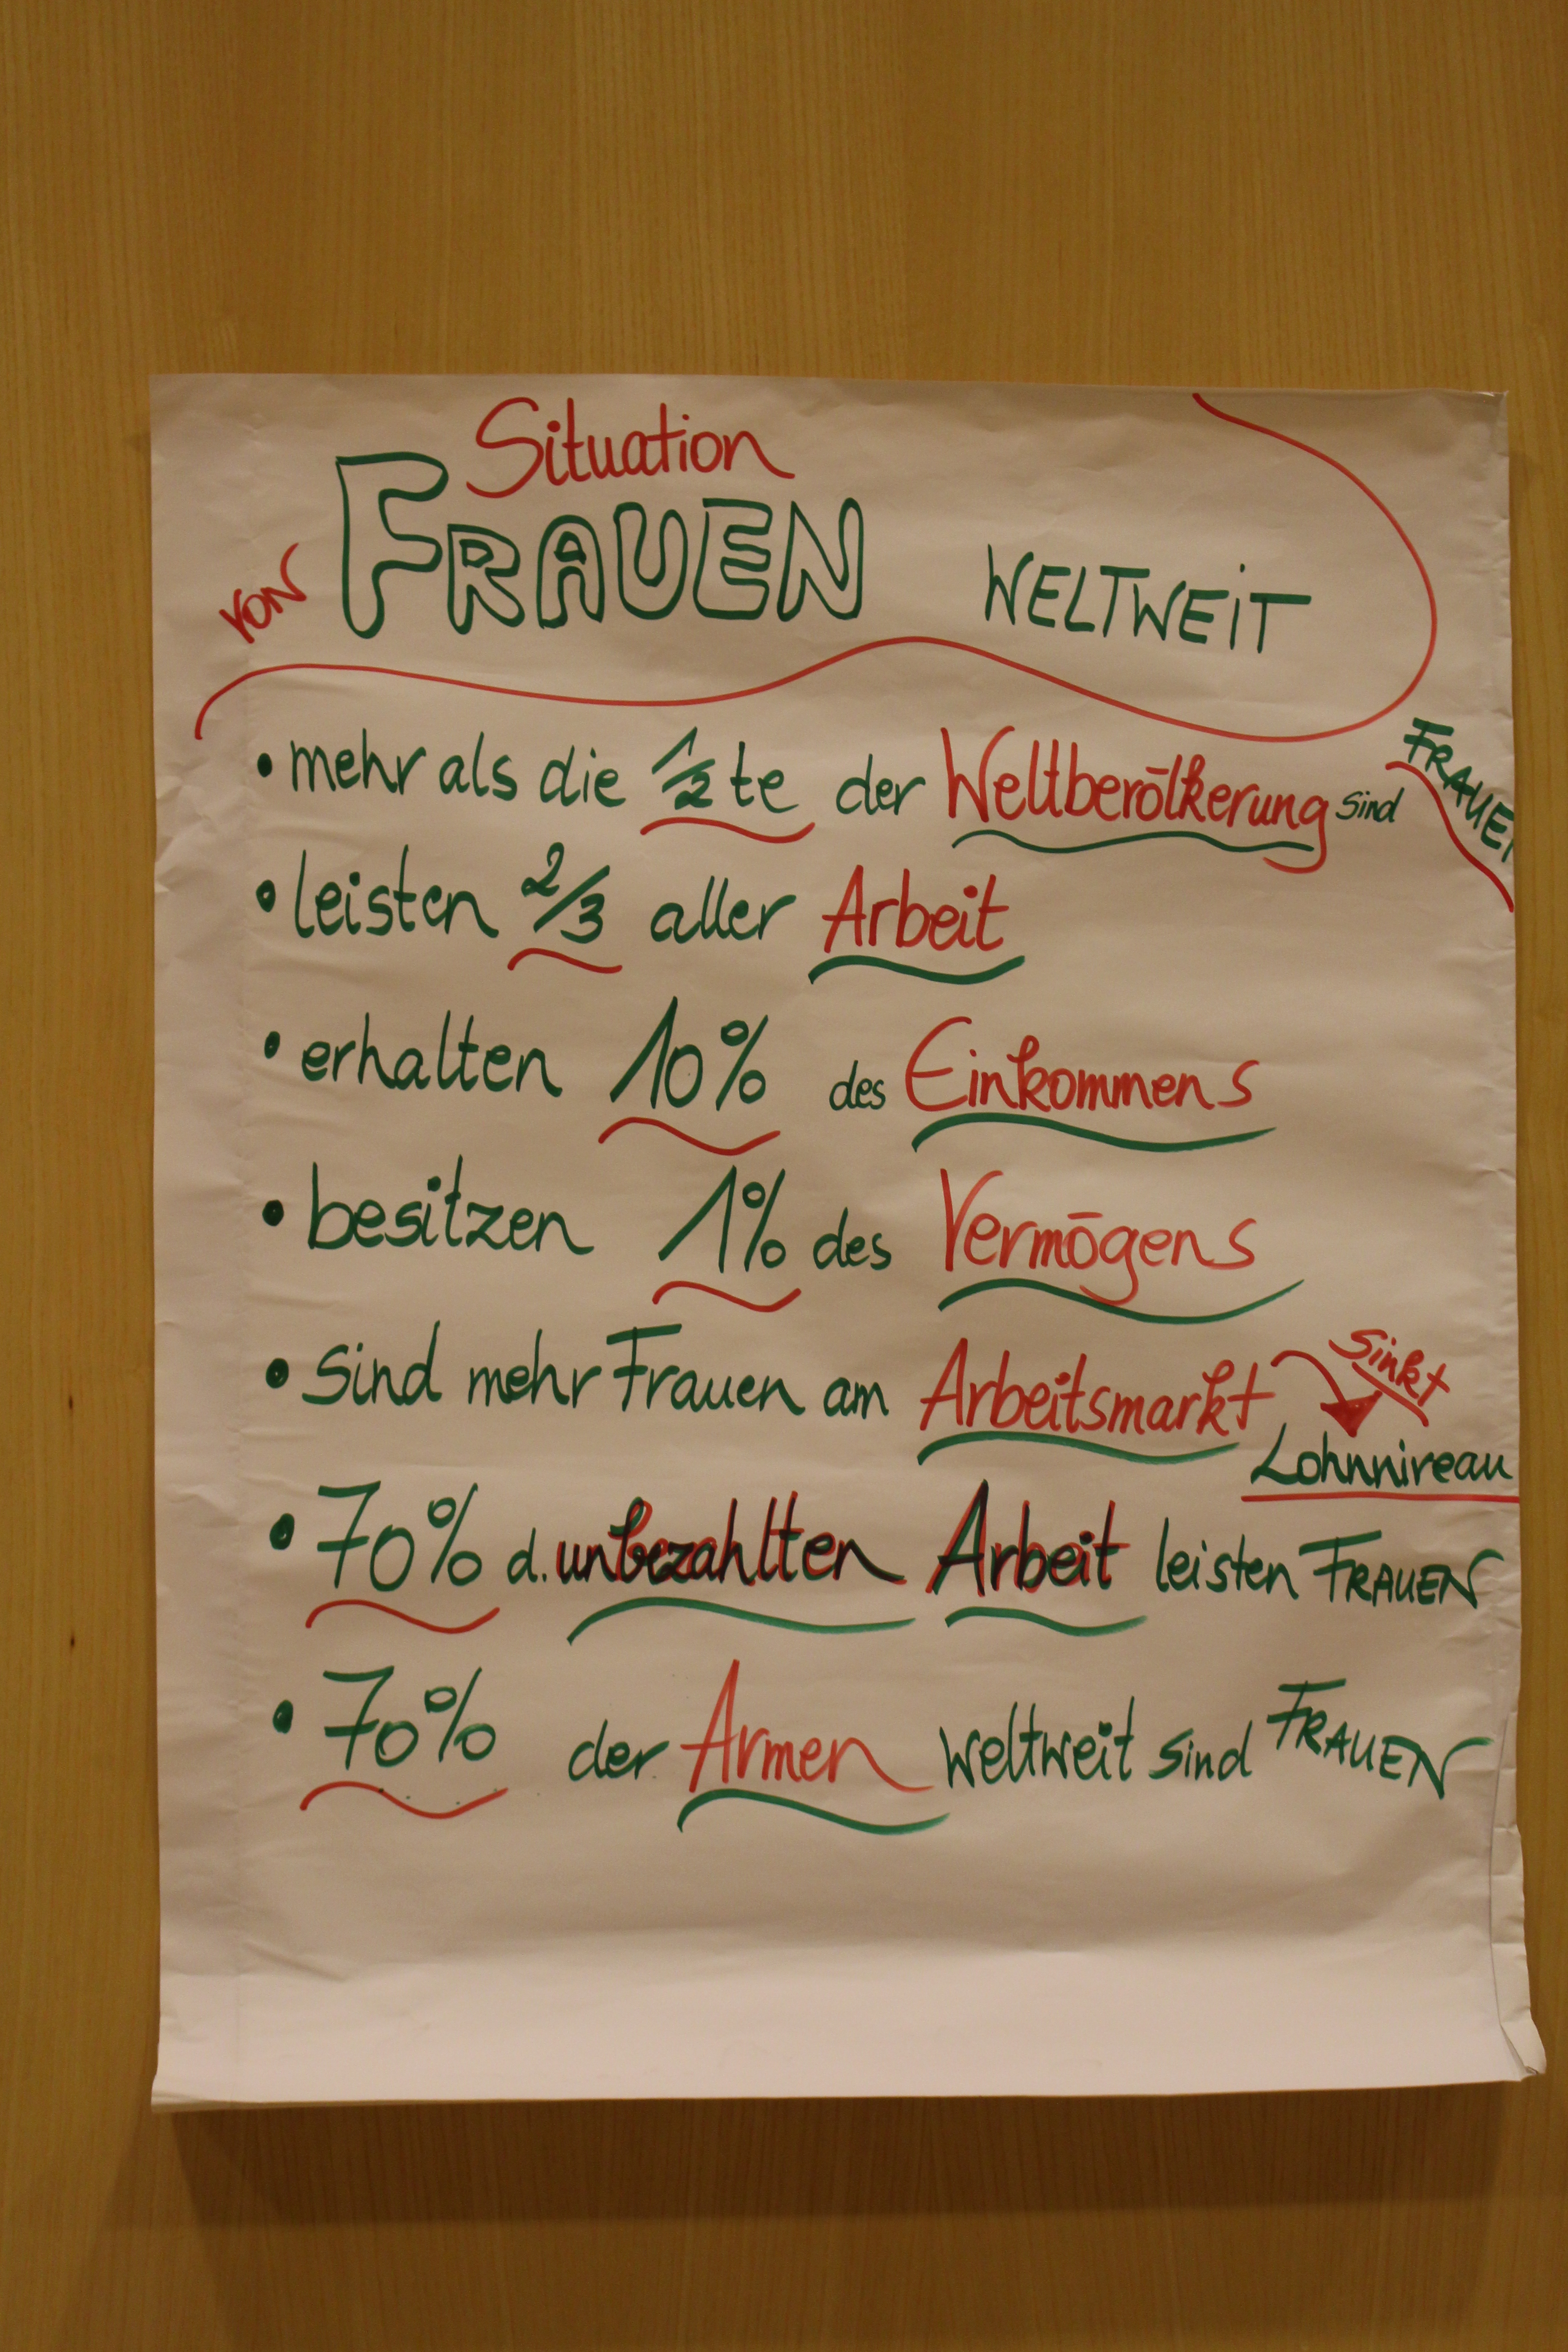 Situation
von FRAUEN WELTWEIT
• mehr als die 1/2 te der Weltbevölkerung sind FRAUEN
• leisten 2/3 aller Arbeit
• erhalten 10% des Einkommens
• besitzen 1% des Vermögens
• sind mehr Frauen am Arbeitsmarkt sinkt
Lohnniveau
• 70% d. unbezahlten Arbeit leisten FRAUEN
• 70% der Armen weltweit sind FRAUEN